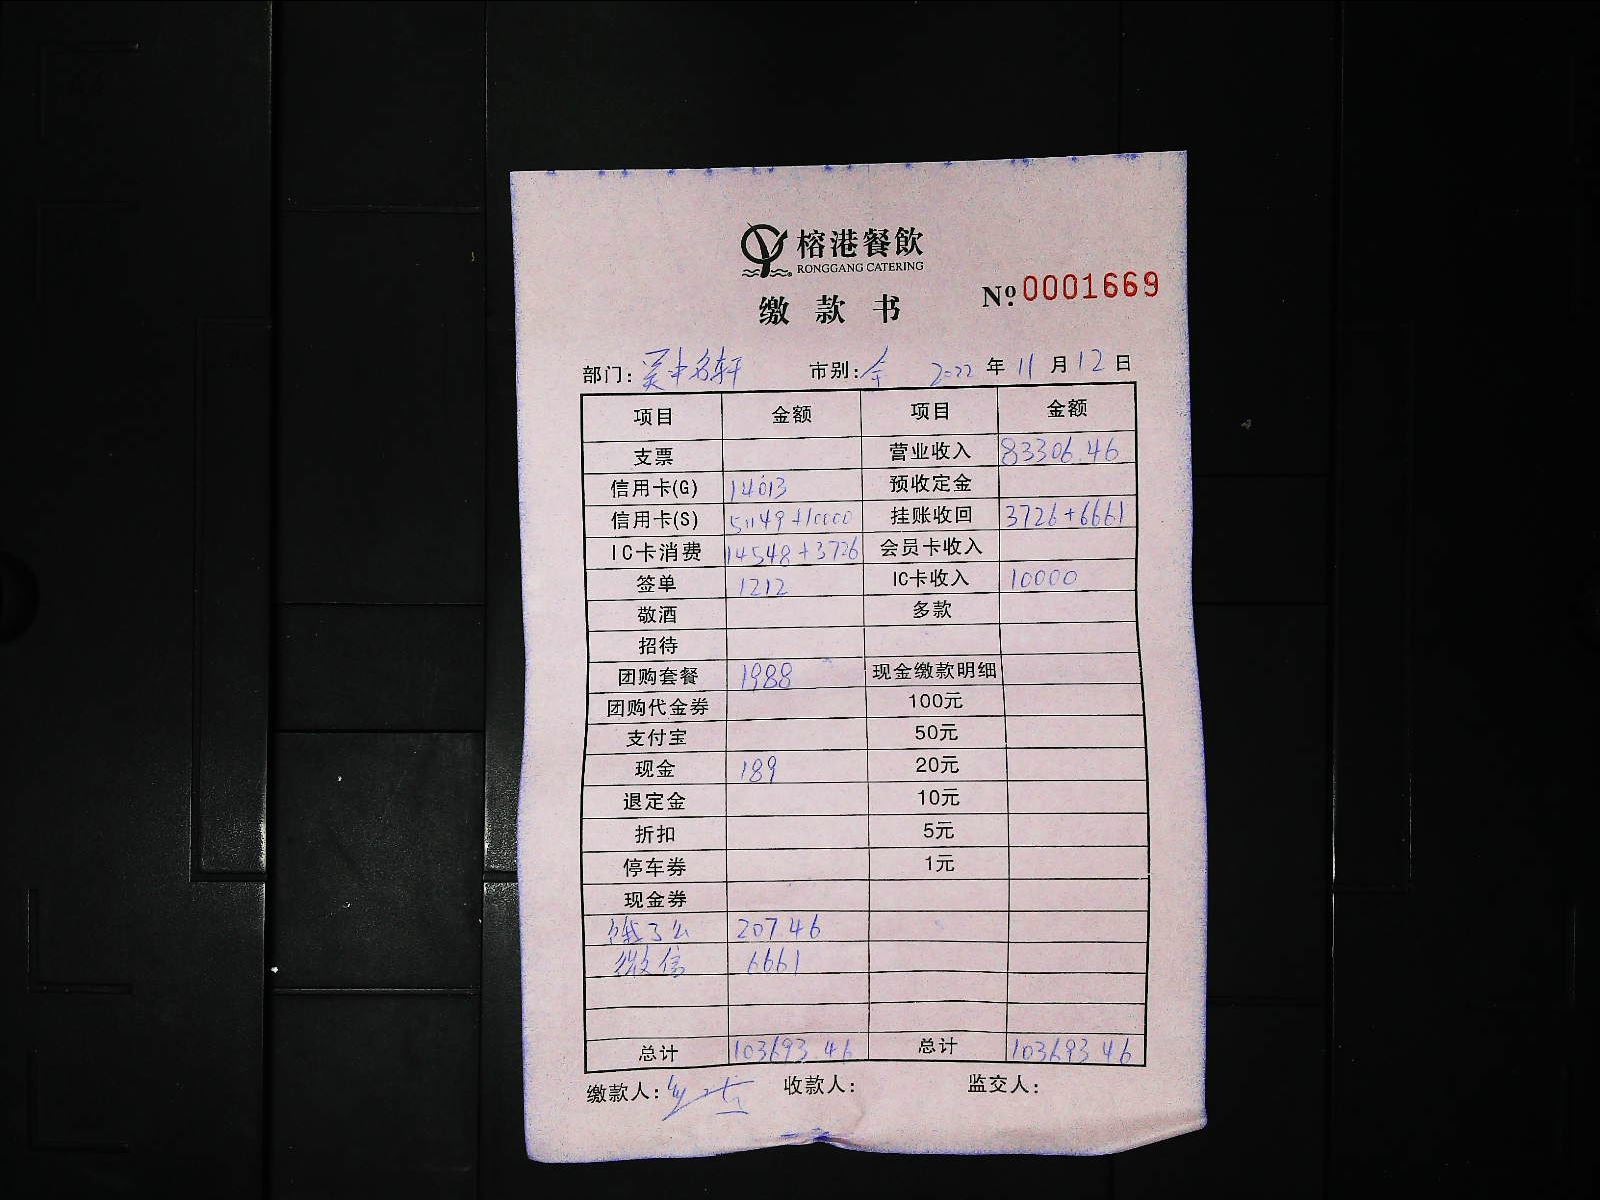 榕港餐飲
RONGGANG CATERING
缴款书
№ 0001669
部门: 吴中名轩 市别: 全 2022 年 11 月 12 日
项目 金额 项目 金额
支票 营业收入 83306.46
信用卡(G) 14013 预收定金
信用卡(S) 51149+10000 挂账收回 3726+6661
IC卡消费 14548+3726 会员卡收入
签单 1212 IC卡收入 10000
敬酒 多款
招待
团购套餐 1988 现金缴款明细
团购代金券 100元
支付宝 50元
现金 189 20元
退定金 10元
折扣 5元
停车券 1元
现金券
饿了么 207.46
微信 6661
总计 103693.46 总计 103693.46
缴款人: 收款人: 监交人: